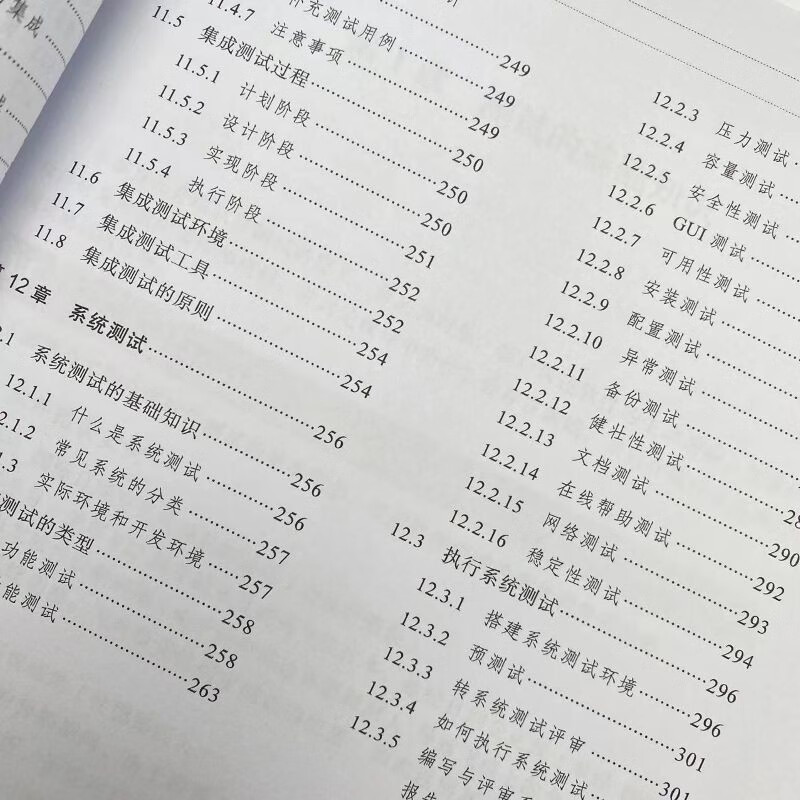 集成
析 249
补充测试用例 249
11.4.7 注意事项 249
11.5 集成测试过程 250
11.5.1 计划阶段 250
11.5.2 设计阶段 250
11.5.3 实现阶段 251
11.5.4 执行阶段 252
11.6 集成测试环境 252
11.7 集成测试工具 254
11.8 集成测试的原则 254
12章 系统测试 256
.1 系统测试的基础知识 256
12.1.1 什么是系统测试 256
2.1.2 常见系统的分类 257
.3 实际环境和开发环境 257
测试的类型 258
功能测试 258
能测试 263
12.2.3 压力测试
12.2.4 容量测试
12.2.5 安全性测试
12.2.6 GUI 测试
12.2.7 可用性测试
12.2.8 安装测试
12.2.9 配置测试
12.2.10 异常测试
12.2.11 备份测试
12.2.12 健壮性测试 28
12.2.13 文档测试 290
12.2.14 在线帮助测试 292
12.2.15 网络测试 293
12.2.16 稳定性测试 294
12.3 执行系统测试 296
12.3.1 搭建系统测试环境 296
12.3.2 预测试 301
12.3.3 转系统测试评审 301
12.3.4 如何执行系统测试
12.3.5 编写与评审
报告